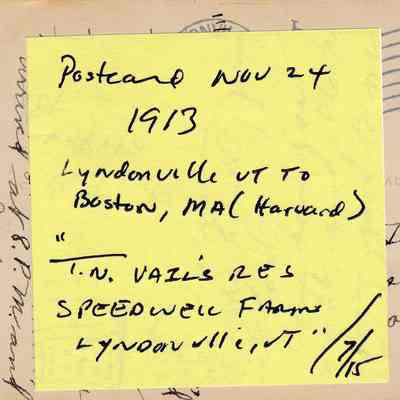 Postcard NOV 24
1913
Lyndonville VT TO
Boston, MA (Harvard)
"
T.N. VAIL'S RES
SPEEDWELL FARMS
LYNDONVIlle, VT"
7/15
mind at 8 P.M. and